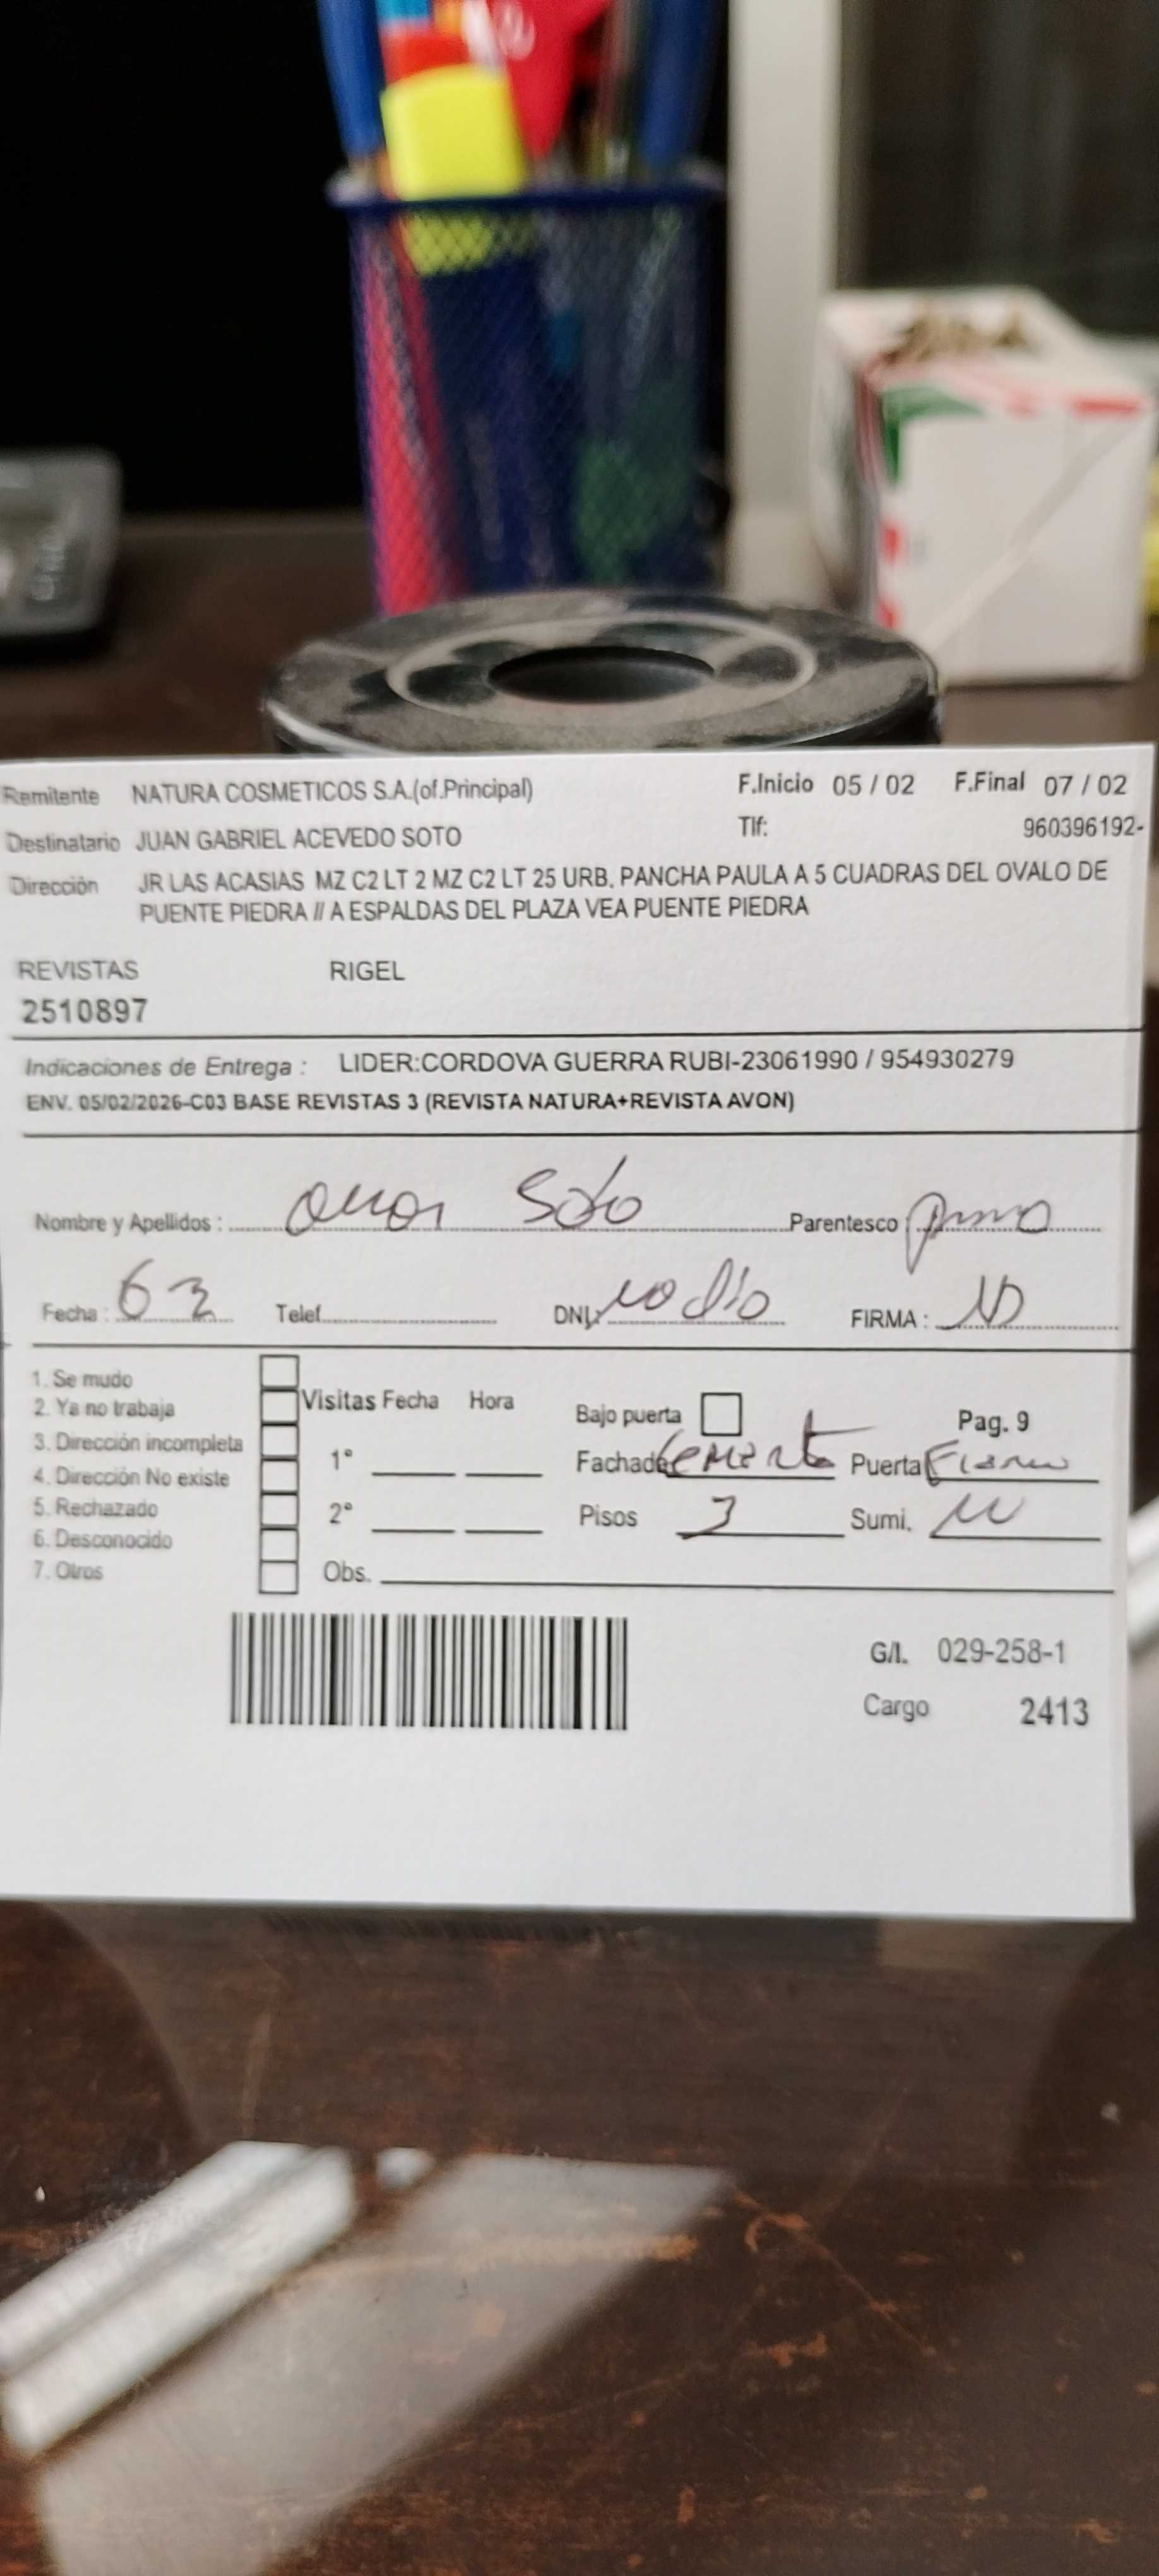 Remitente NATURA COSMETICOS S.A.(of.Principal) F.Inicio 05 / 02 F.Final 07 / 02
Destinatario JUAN GABRIEL ACEVEDO SOTO Tlf: 960396192-
Dirección JR LAS ACASIAS MZ C2 LT 2 MZ C2 LT 25 URB. PANCHA PAULA A 5 CUADRAS DEL OVALO DE
PUENTE PIEDRA // A ESPALDAS DEL PLAZA VEA PUENTE PIEDRA
REVISTAS RIGEL
2510897
Indicaciones de Entrega : LIDER:CORDOVA GUERRA RUBI-23061990 / 954930279
ENV. 05/02/2026-C03 BASE REVISTAS 3 (REVISTA NATURA+REVISTA AVON)
Nombre y Apellidos : Soto Parentesco primo
Fecha : 6 2 Telef. DNI: no dio FIRMA :
1. Se mudo
2. Ya no trabaja
3. Dirección incompleta
4. Dirección No existe
5. Rechazado
6. Desconocido
7. Otros
Visitas Fecha Hora
1°
2°
Obs.
Bajo puerta Pag. 9
Fachada Cemento Puerta Fierro
Pisos 3 Sumi.
G/I. 029-258-1
Cargo 2413